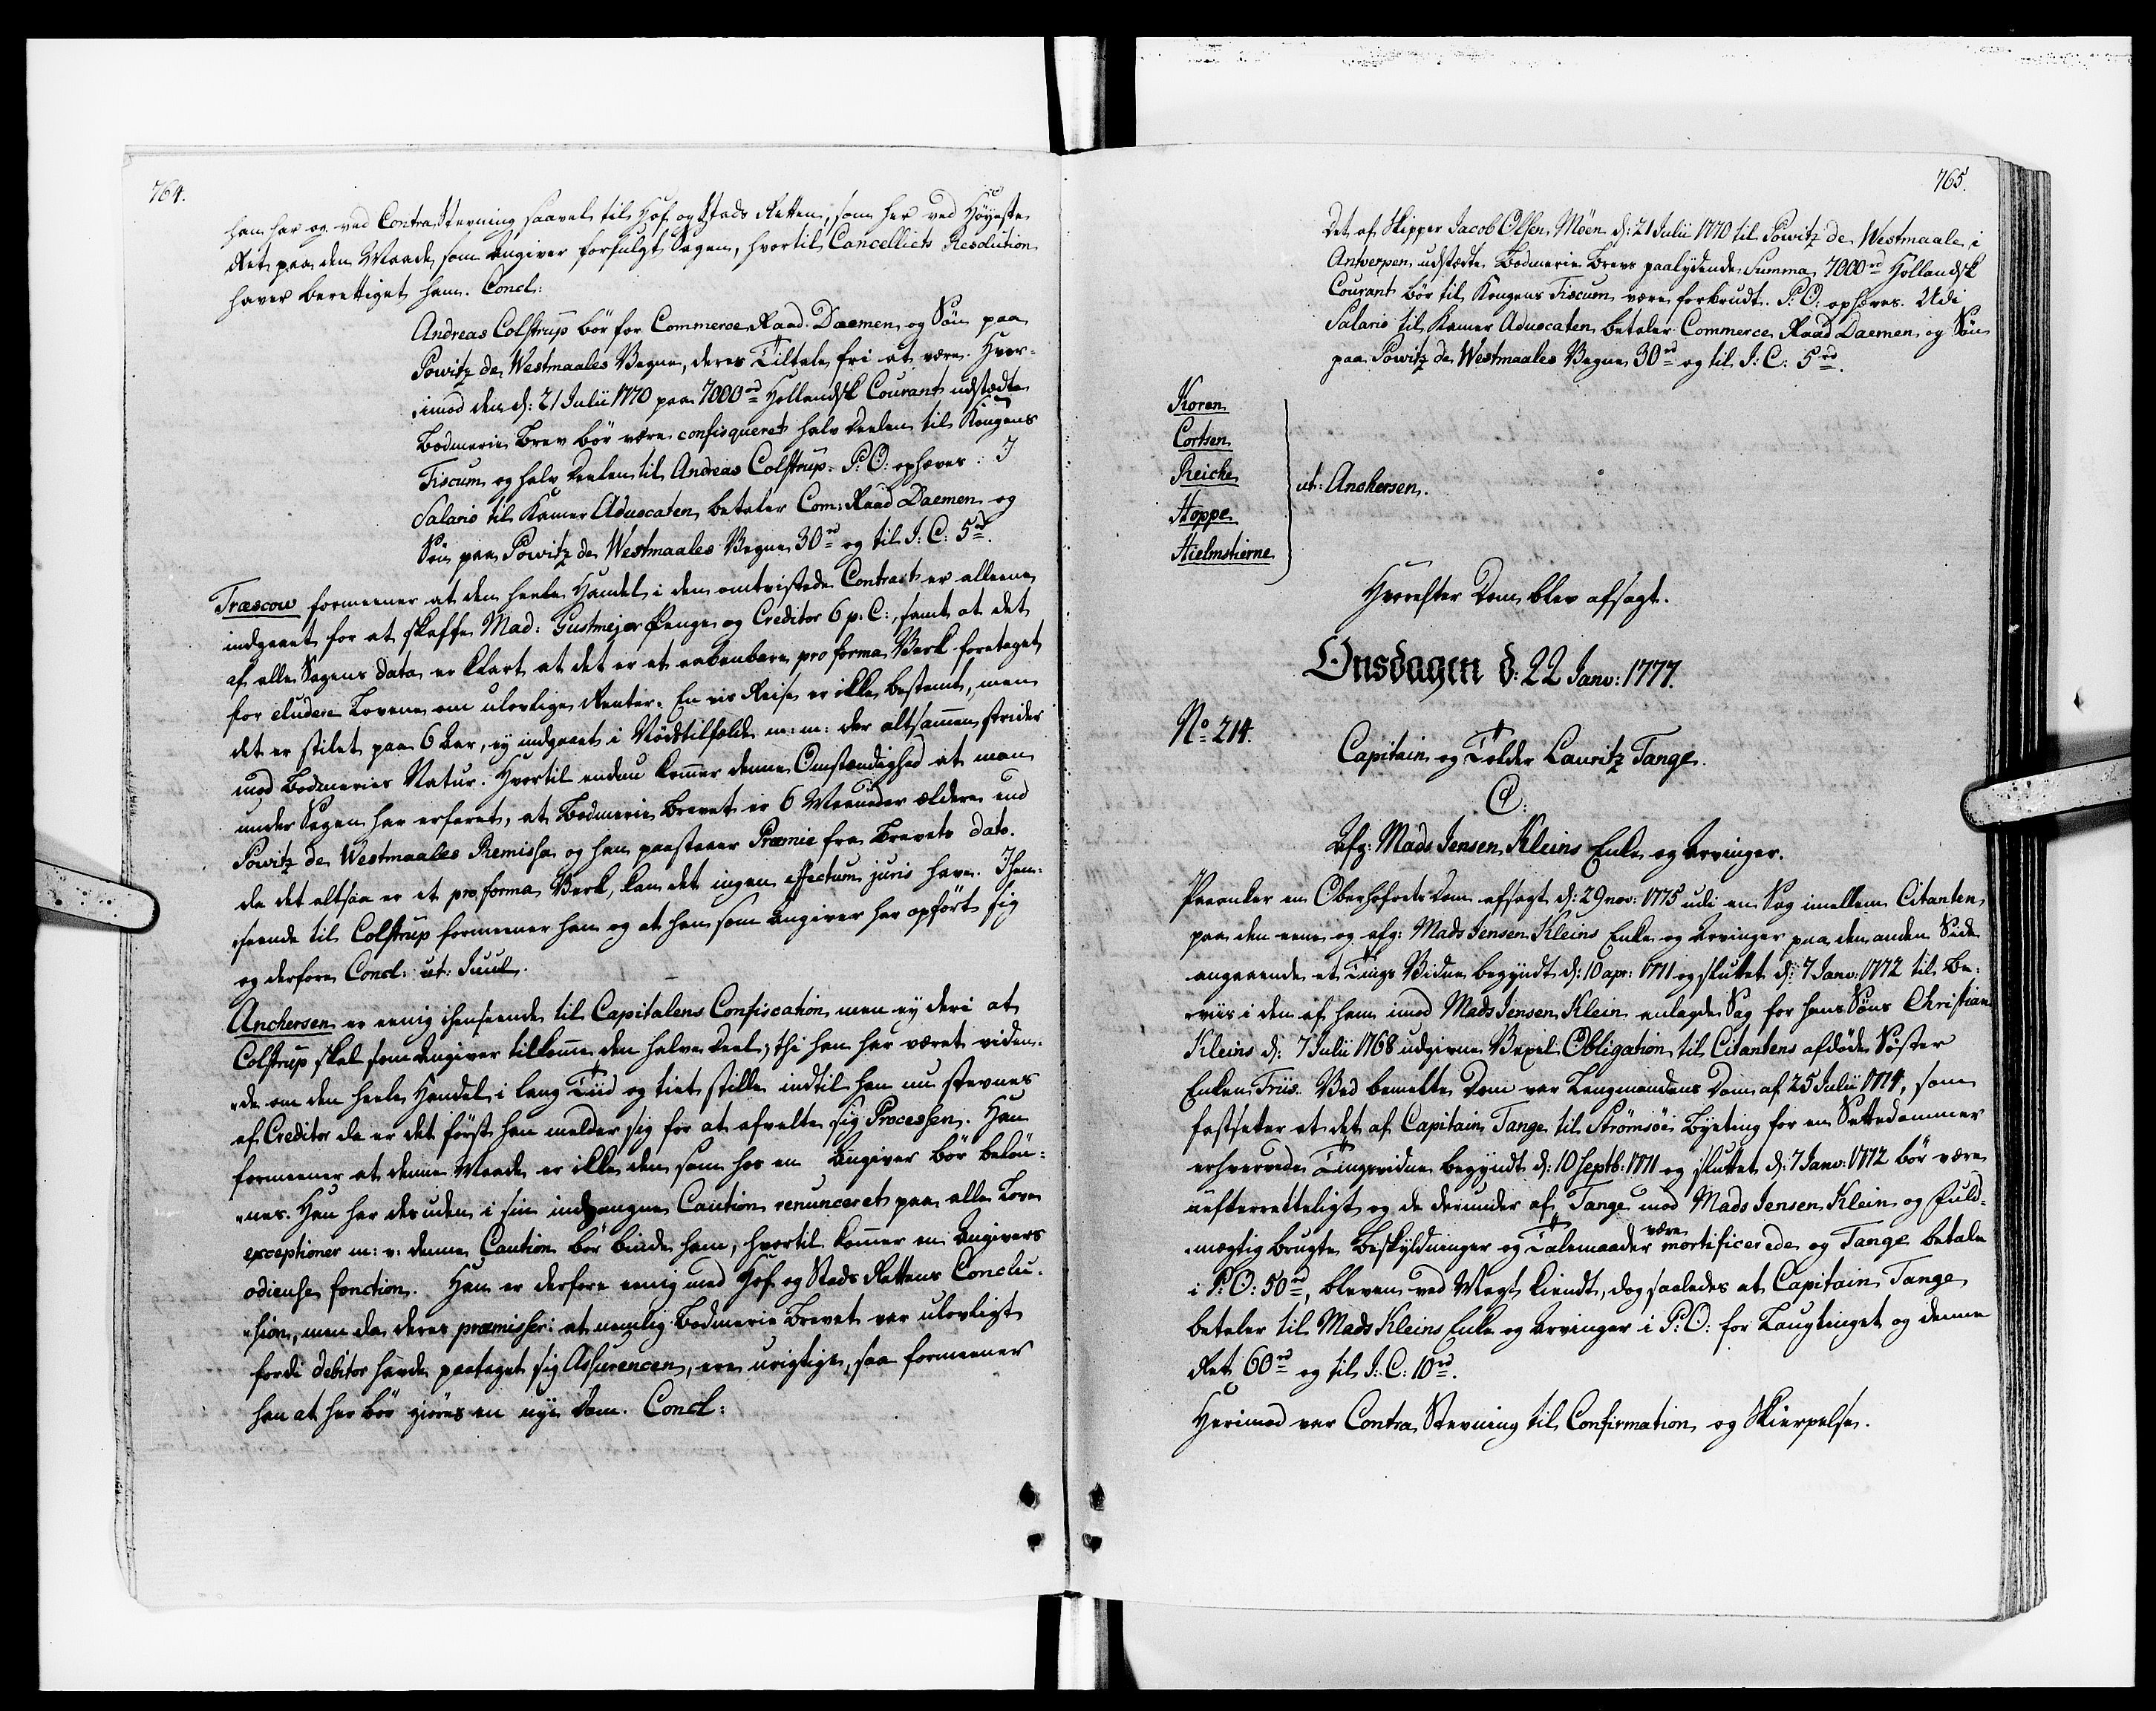 764.
han har og ved Contra Stevning saavel til Hof og Stads Retten, som her ved Höyeste
Ret paa den Maade som Angiver forfulgt Sagen, hvortil Cancelliets Resolution
haver berettiget ham. Concl:
Andreas Colstrup bör for Commerce Raad Daemen og Sön paa
Powitz de Westmaales Vegne, deres Tiltale fri at være. Hvor-
imod den d: 21 Julii 1770 paa 7000 rd Hollandsk Courant udstædte
Bodmerie Brev bör være confisqueret halv Deelen til Kongens
Fiscum og halv Deelen til Andreas Colstrup. P: O: ophæves. I
Salario til Kamer Advocaten betaler Com: Raad Daemen og
Sön paa Powitz de Westmaales Vegne 30 rd og til J: C: 5 rd.
Træscow formeener at den heele Handel i den omtvistede Contract er alleene
indgaaet for at skaffe Mad: Gustmejer Penge og Creditor 6 p: C:, samt at det
af alle Sagens data er klart at det er et aabenbare pro forma Verk foretaget
for eludere Lovene om ulovlige Renter. En vis Reise er ikke bestemt, men
det er stilet paa 6 Aar, ey indgaaet i Nödstilfælde m: m: der altsammen strider
mod Bodmeries Natur. Hvortil endnu kommer denne Omstændighed at man
under Sagen har erfaret, at Bodmerie Brevet er 6 Maaneder ældere end
Powitz de Westmaales Remissa og han paastaaer Præmie fra Brevets dato.
da det altsaa er et pro forma Verk, kan det ingen effectum juris have. Ihen-
seende til Colstrup formeener han og at han som Angiver har opfört sig
og derfore Concl: ut: Juul.
Anchersen er eenig ihenseende til Capitalens Confiscation men ey deri at
Colstrup skal som Angiver tilkomme den halve Deel; thi han har været viden-
de om den heele Handel i lang Tiid og tiet stille indtil han nu stevnes
af Creditor da er det först han melder sig for at afvelte sig Processen. Han
formeener at denne Maade er ikke den som hos en Angiver bör belön-
nes. Han har desuden i sin indgangne Caution renunceret paa alle Love
exceptioner m: v: denne Caution bör binde ham, hvortil kommer en Angivers
odieuse fonction. Han er derfore eenig med Hof og Stads Rettens Conclu-
sion, men da deres præmisser: at nemlig Bodmerie Brevet var ulovligt
fordi debitor havde paataget sig Assurencen, ere urigtige, saa formeener
han at her bör giöres en nye Dom. Concl:
765.
Det af Skipper Jacob Olsen Möen d: 21 Julii 1770 til Powitz de Westmaale i
Antverpen udstædte Bodmerie Brevs paalydende Summa 7000 rd Hollandsk
Courant bör til Kongens Fiscum være forbrudt. P: O: ophæves. Udi
Salario til Kamer Advocaten betaler Commerce Raad Daemen og Sön
paa Powitz de Westmaales Vegne 30 rd og til J: C: 5 rd.
Koren
Cortsen
Reiche
ut: Anchersen.
Hoppe
Hielmstierne
Hvorefter Dom blev afsagt.
Onsdagen d: 22 Janv: 1777.
No 214.
Capitain og Tolder Lauritz Tange.
C:
Afg: Mads Jensen Kleins Enke og Arvinger.
Paaanker en Oberhofrets Dom afsagt d: 29 nov: 1775 udi en Sag imellem Citanten
paa den eene og afg: Mads Jensen Kleins Enke og Arvinger paa den anden Side
angaaende et Tings Vidne begyndt d: 10 apr: 1771 og sluttet d: 7 Janv: 1772 til Be-
viis i den af ham imod Mads Jensen Klein anlagde Sag for hans Söns Christian
Kleins d: 7 Julii 1768 udgivne Vexel Obligation til Citantens afdöde Söster
Enken Friis. Ved bemelte Dom var Laugmandens Dom af 25 Julii 1774, som
fastsetter at det af Capitain Tange til Strömsöe Byeting for en Settedommer
erhvervede Tingsvidne begyndt d: 10 Septb: 1771 og sluttet d: 7 Janv: 1772 bör være
uefterretteligt og de derunder af Tange mod Mads Jensen Klein og Fuld-
mægtig brugte Beskyldninger og Talemaader være mortificerede og Tange betale
i P: O: 50 rd, bleven ved Magt kiendt, dog saaledes at Capitain Tange
betaler til Mads Kleins Enke og Arvinger i P: O: for Laugtinget og denne
Ret 60 rd og til J: C: 10 rd.
Herimod var Contra Stevning til Confirmation og Skierpelse.